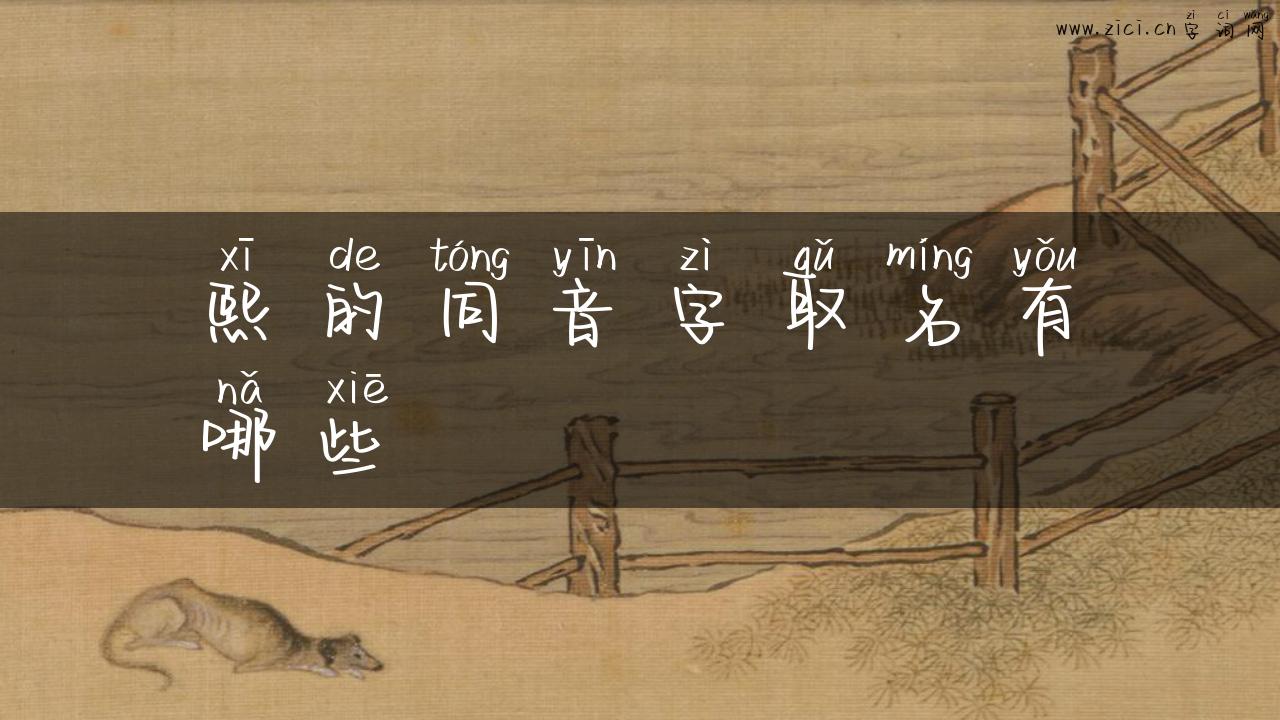 zì cí wǎng
www.zici.cn 字词网
xī de tóng yīn zì qǔ míng yǒu
熙的同音字取名有
nǎ xiē
哪些